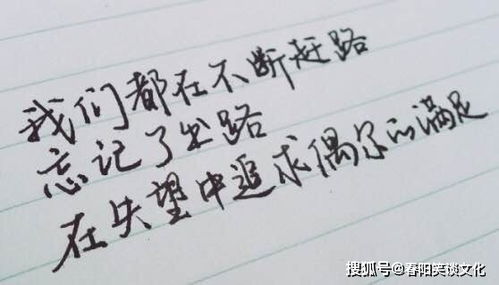 我们都在不断赶路
忘记了出路
在失望中追求偶尔的满足
搜狐号@春阳笑谈文化